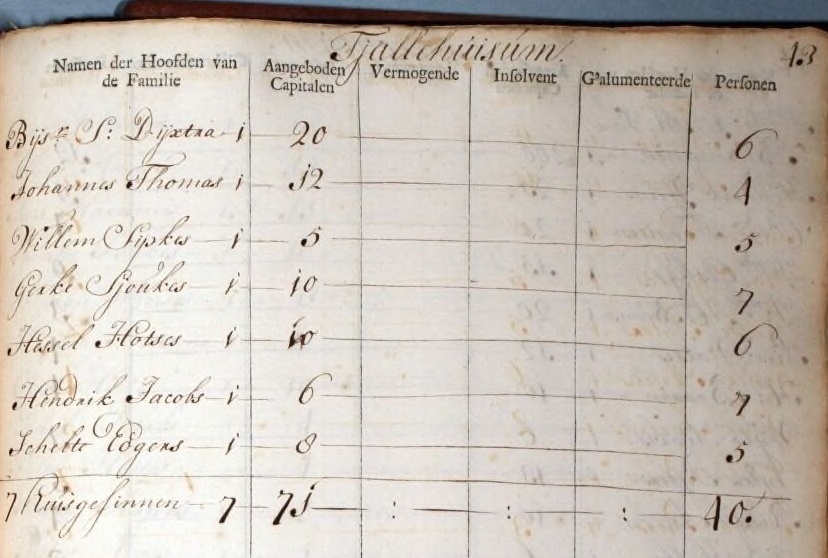 Tjallehuisum. 43
Namen der Hoofden van de Familie Aangeboden Capitalen Vermogende Insolvent G'alumenteerde Personen
S: Dijxtra 1 20 6
Johannes Thomas 1 12 4
Willem Sijpkes 1 5 5
Gerke Sjoukes 1 10 7
Hessel Hotses 1 10 6
Hendrik Jacobs 1 6 7
Schelte Edgers 1 8 5
7 Huisgesinnen 7 71 : : : 40.